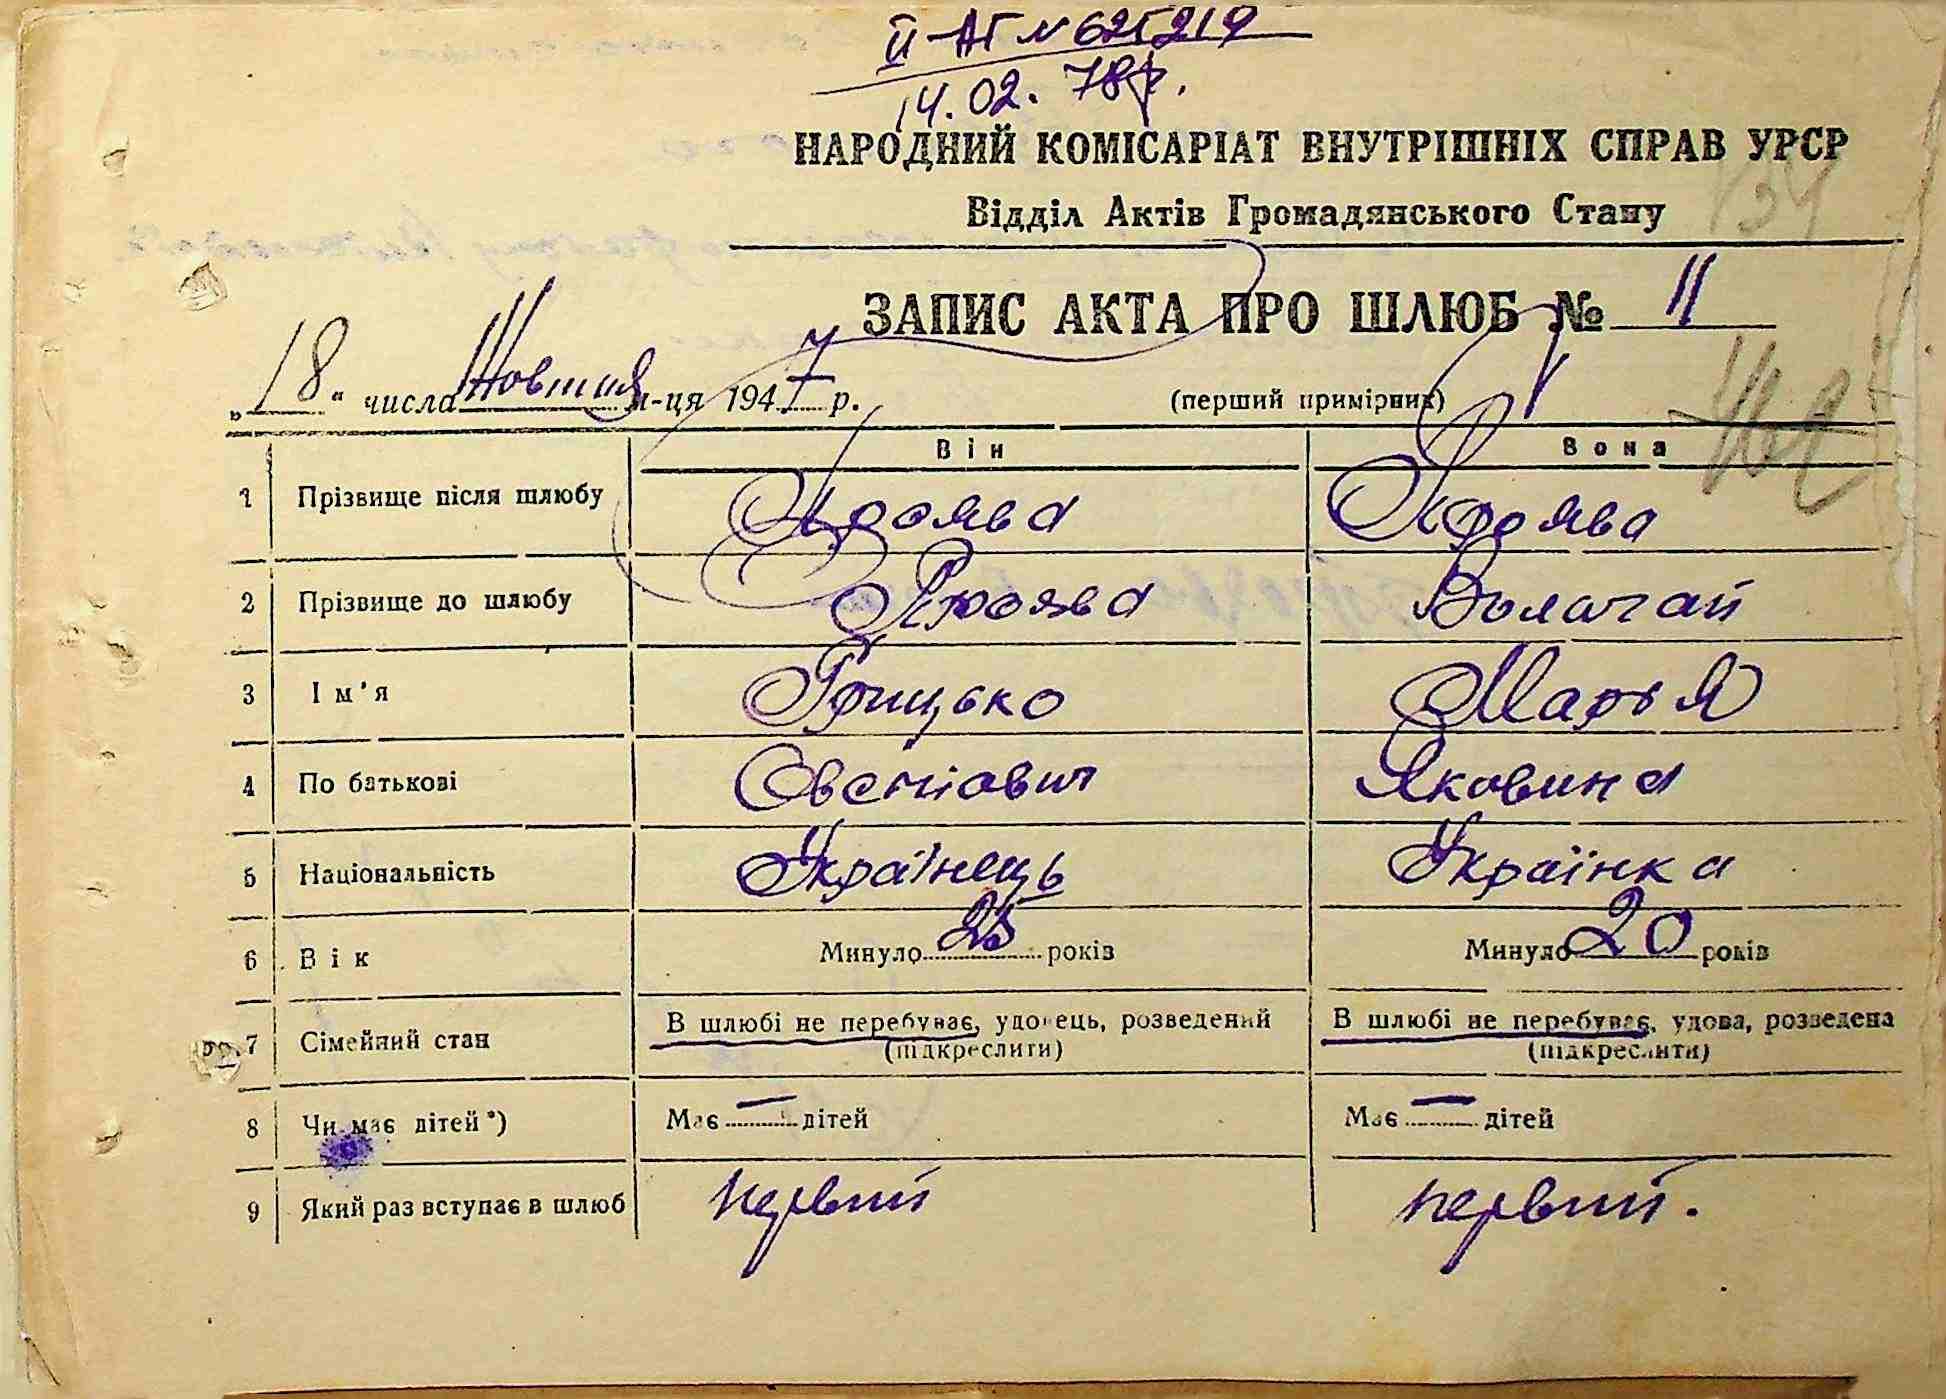 II-АГ № 625219
14.02.78р.
НАРОДНИЙ КОМІСАРІАТ ВНУТРІШНІХ СПРАВ УРСР
Відділ Актів Громадянського Стану
ЗАПИС АКТА ПРО ШЛЮБ № 11
„18“ числа Жовтня м-ця 1947 р. (перший примірник)
Він Вона
1 Прізвище після шлюбу Кроява Кроява
2 Прізвище до шлюбу Кроява Волачай
3 Ім'я Грицько Марья
4 По батькові Овсніович Яковина
5 Національність Українець Українка
6 Вік Минуло 25 років Минуло 20 років
7 Сімейний стан В шлюбі не перебуває, удовець, розведений В шлюбі не перебуває, удова, розведена
(підкреслити) (підкреслити)
8 Чи має дітей*) Має — дітей Має — дітей
9 Який раз вступає в шлюб первий первий.